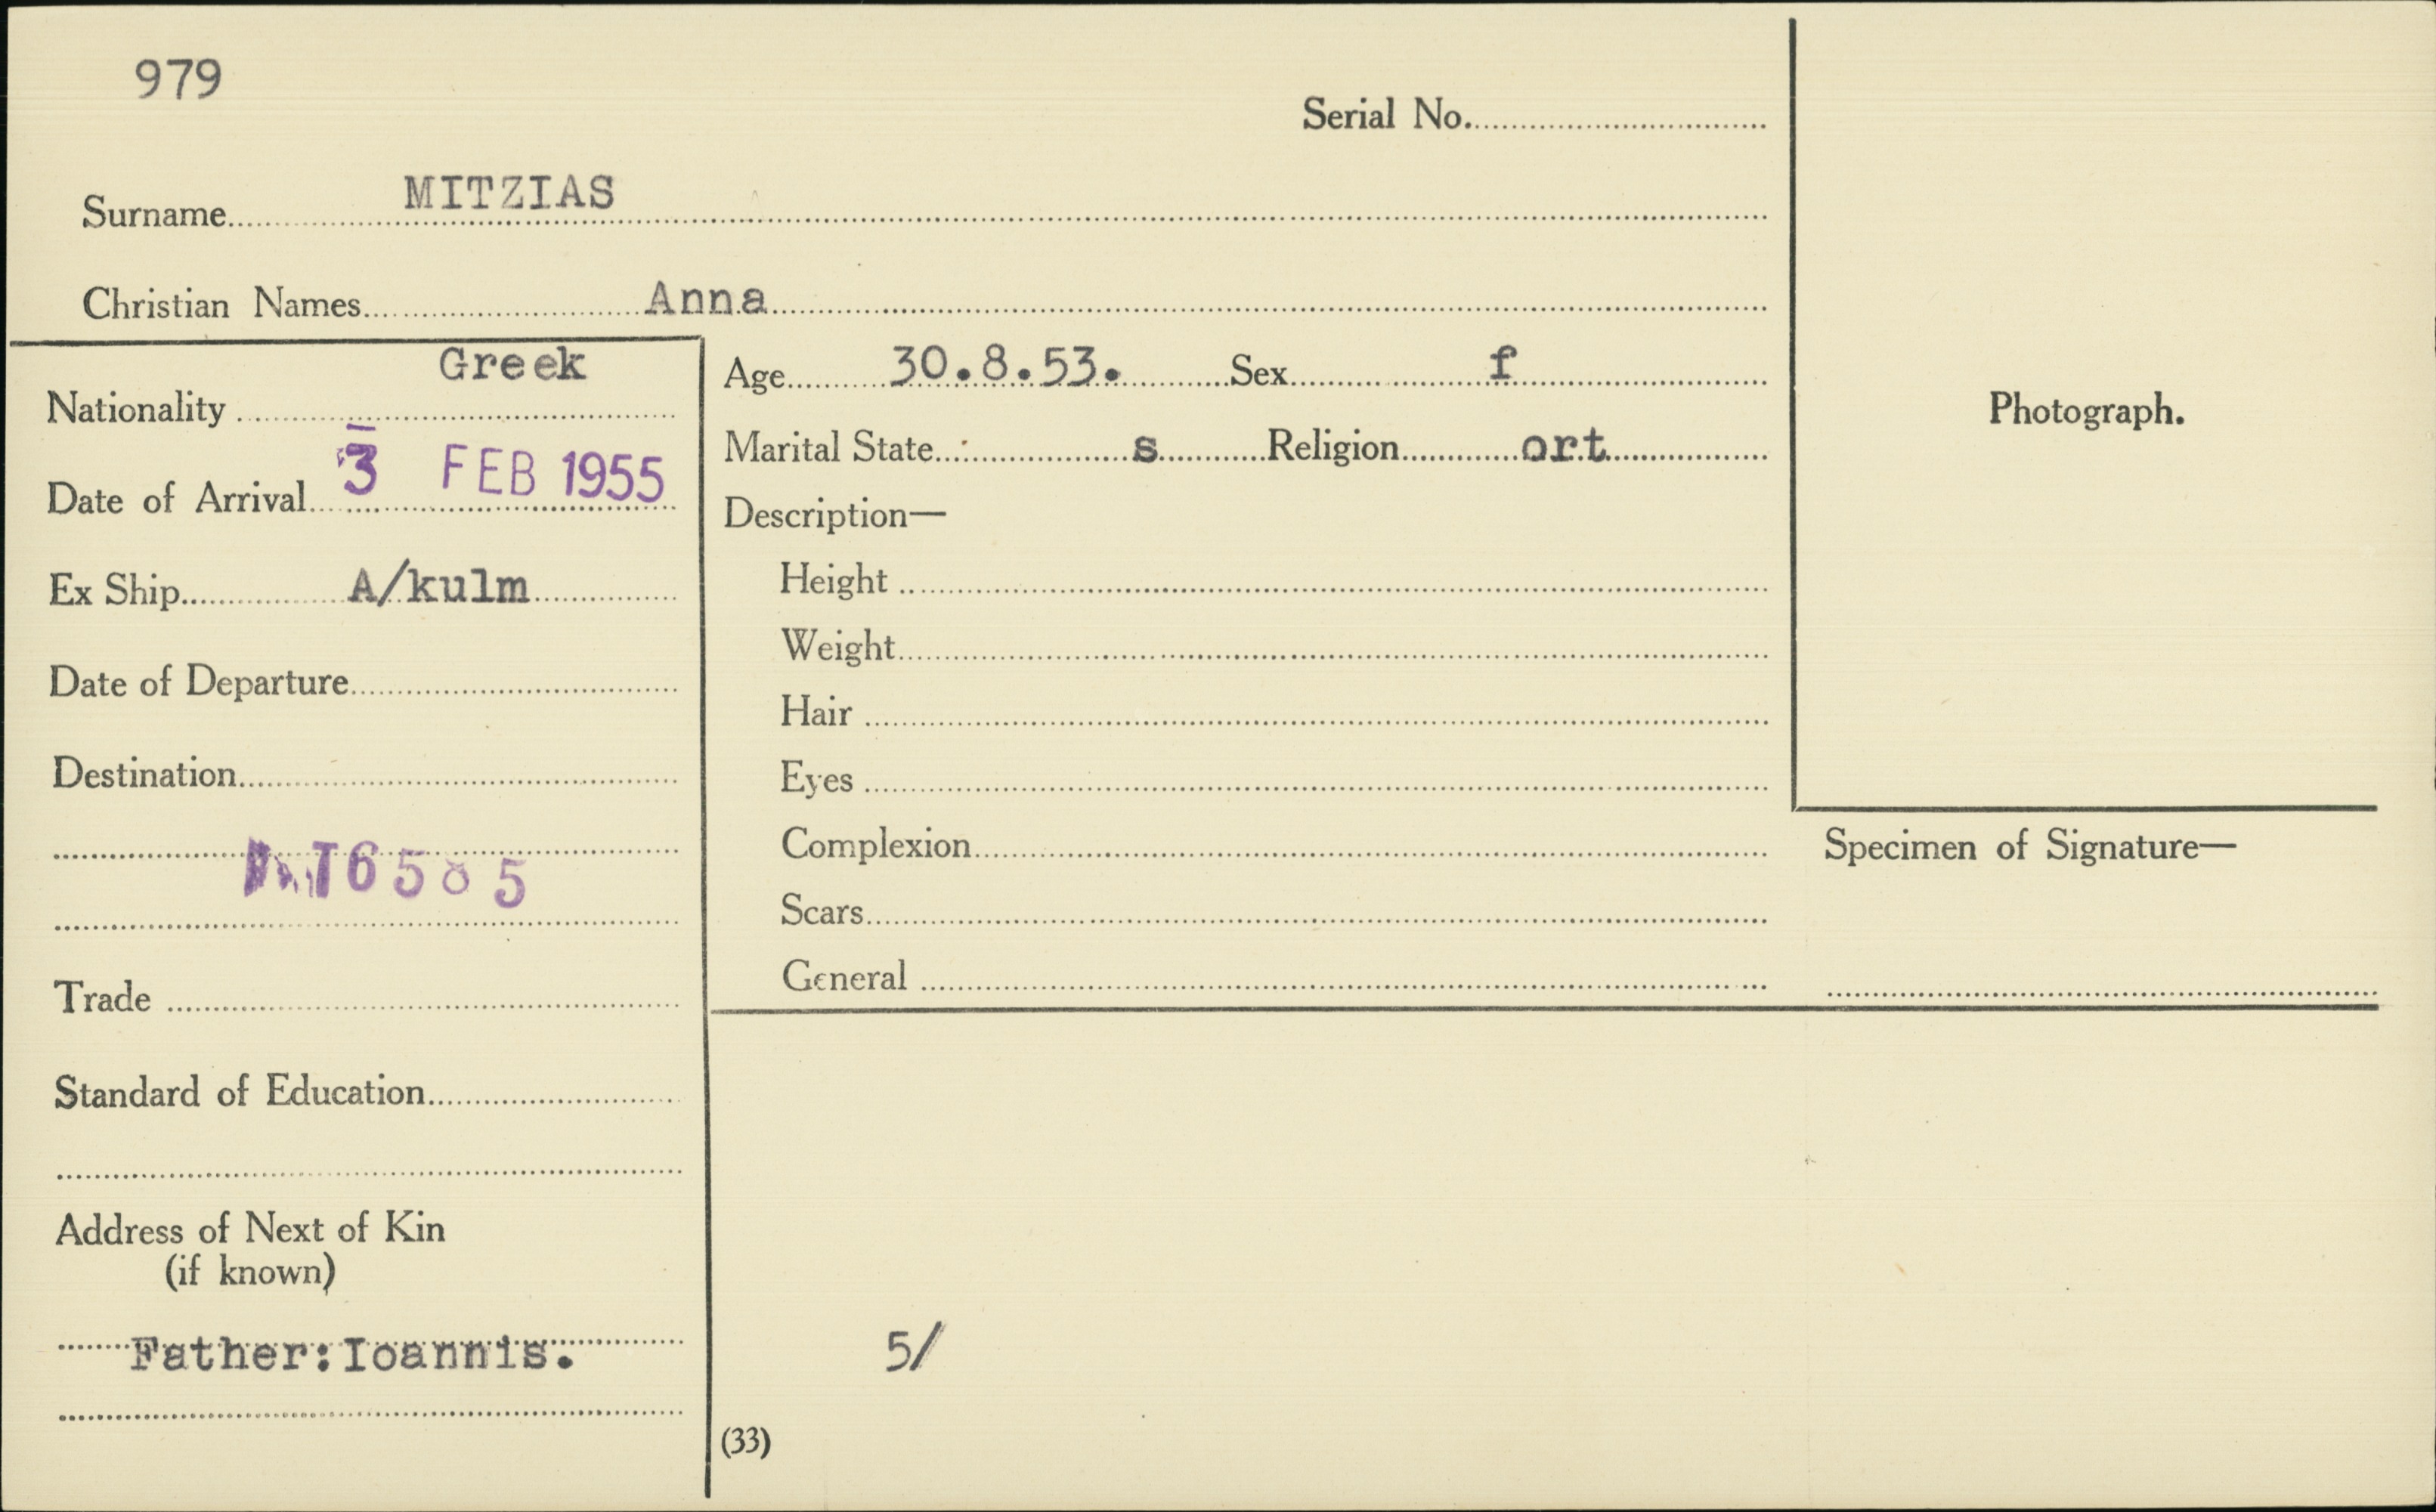 979
Serial No.
Surname MITZIAS
Christian Names Anna
Nationality Greek
Date of Arrival 3 FEB 1955
Ex Ship A/kulm
Date of Departure
Destination
Trade
Standard of Education
Address of Next of Kin
(if known)
Father:Ioannis.
Age 30.8.53. Sex f
Marital State s Religion ort
Description—
Height
Weight
Hair
Eyes
Complexion
Scars
General
5/
(33)
Photograph.
Specimen of Signature—